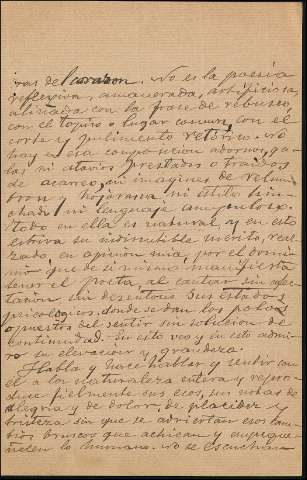 ras del corazon. No es la poesía
reflexiva, amanerada, artificiosa,
aliñada con la frase de rebusco,
con el tópico o lugar comun, con el
corte y pulimento retórico. No
hay en esa composicion adornos, ga-
las ni atavíos prestados o traidos
de acarreo, ni imagenes de relum-
bron y hojarasca ni estilo hin-
chado ni lenguaje ampuloso.
Todo en ella es natural, y en esto
estriva su indiscutible mérito, real-
zado, en opinion mia, por el domi-
nio que de si mismo manifiesta
tener el poeta, al cantar sin afec-
tacion ni desentonos sus estados
psicologicos, donde se dan los polos
opuestos del sentir sin solucion de
continuidad. En esto veo y en esto admi-
ro su elevacion y grandeza.
Habla y hace hablar y sentir con
el a la naturaleza entera y repro-
duce fielmente sus ecos, sus notas de
alegria y de dolor, de placidez y
tristeza sin que se adviertan esos cam-
bios bruscos que achican y empeque-
ñecen lo humano. No se escuchan